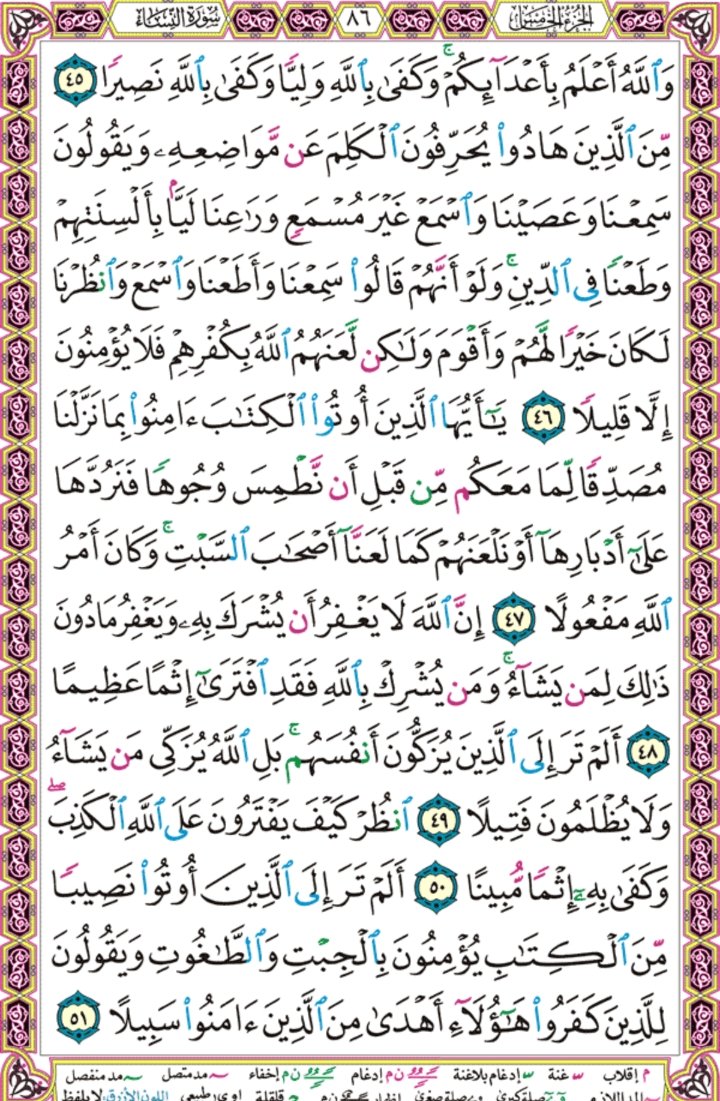 سورة النساء ٨٦ الجزء الخامس
وَٱللَّهُ أَعْلَمُ بِأَعْدَآئِكُمْ ۚ وَكَفَىٰ بِٱللَّهِ وَلِيًّا وَكَفَىٰ بِٱللَّهِ نَصِيرًا ٤٥
مِّنَ ٱلَّذِينَ هَادُوا۟ يُحَرِّفُونَ ٱلْكَلِمَ عَن مَّوَاضِعِهِۦ وَيَقُولُونَ
سَمِعْنَا وَعَصَيْنَا وَٱسْمَعْ غَيْرَ مُسْمَعٍ وَرَٰعِنَا لَيًّۢا بِأَلْسِنَتِهِمْ
وَطَعْنًا فِى ٱلدِّينِ ۚ وَلَوْ أَنَّهُمْ قَالُوا۟ سَمِعْنَا وَأَطَعْنَا وَٱسْمَعْ وَٱنظُرْنَا
لَكَانَ خَيْرًا لَّهُمْ وَأَقْوَمَ وَلَـٰكِن لَّعَنَهُمُ ٱللَّهُ بِكُفْرِهِمْ فَلَا يُؤْمِنُونَ
إِلَّا قَلِيلًا ٤٦ يَـٰٓأَيُّهَا ٱلَّذِينَ أُوتُوا۟ ٱلْكِتَـٰبَ ءَامِنُوا۟ بِمَا نَزَّلْنَا
مُصَدِّقًا لِّمَا مَعَكُم مِّن قَبْلِ أَن نَّطْمِسَ وُجُوهًا فَنَرُدَّهَا
عَلَىٰٓ أَدْبَارِهَآ أَوْ نَلْعَنَهُمْ كَمَا لَعَنَّآ أَصْحَـٰبَ ٱلسَّبْتِ ۚ وَكَانَ أَمْرُ
ٱللَّهِ مَفْعُولًا ٤٧ إِنَّ ٱللَّهَ لَا يَغْفِرُ أَن يُشْرَكَ بِهِۦ وَيَغْفِرُ مَا دُونَ
ذَٰلِكَ لِمَن يَشَآءُ ۚ وَمَن يُشْرِكْ بِٱللَّهِ فَقَدِ ٱفْتَرَىٰٓ إِثْمًا عَظِيمًا
٤٨ أَلَمْ تَرَ إِلَى ٱلَّذِينَ يُزَكُّونَ أَنفُسَهُم ۚ بَلِ ٱللَّهُ يُزَكِّى مَن يَشَآءُ
وَلَا يُظْلَمُونَ فَتِيلًا ٤٩ ٱنظُرْ كَيْفَ يَفْتَرُونَ عَلَى ٱللَّهِ ٱلْكَذِبَ ۖ
وَكَفَىٰ بِهِۦٓ إِثْمًا مُّبِينًا ٥٠ أَلَمْ تَرَ إِلَى ٱلَّذِينَ أُوتُوا۟ نَصِيبًا
مِّنَ ٱلْكِتَـٰبِ يُؤْمِنُونَ بِٱلْجِبْتِ وَٱلطَّـٰغُوتِ وَيَقُولُونَ
لِلَّذِينَ كَفَرُوا۟ هَـٰٓؤُلَآءِ أَهْدَىٰ مِنَ ٱلَّذِينَ ءَامَنُوا۟ سَبِيلًا ٥١
م إقلاب غنة إدغام بلاغنة ن م إدغام ن م إخفاء مد متصل مد منفصل